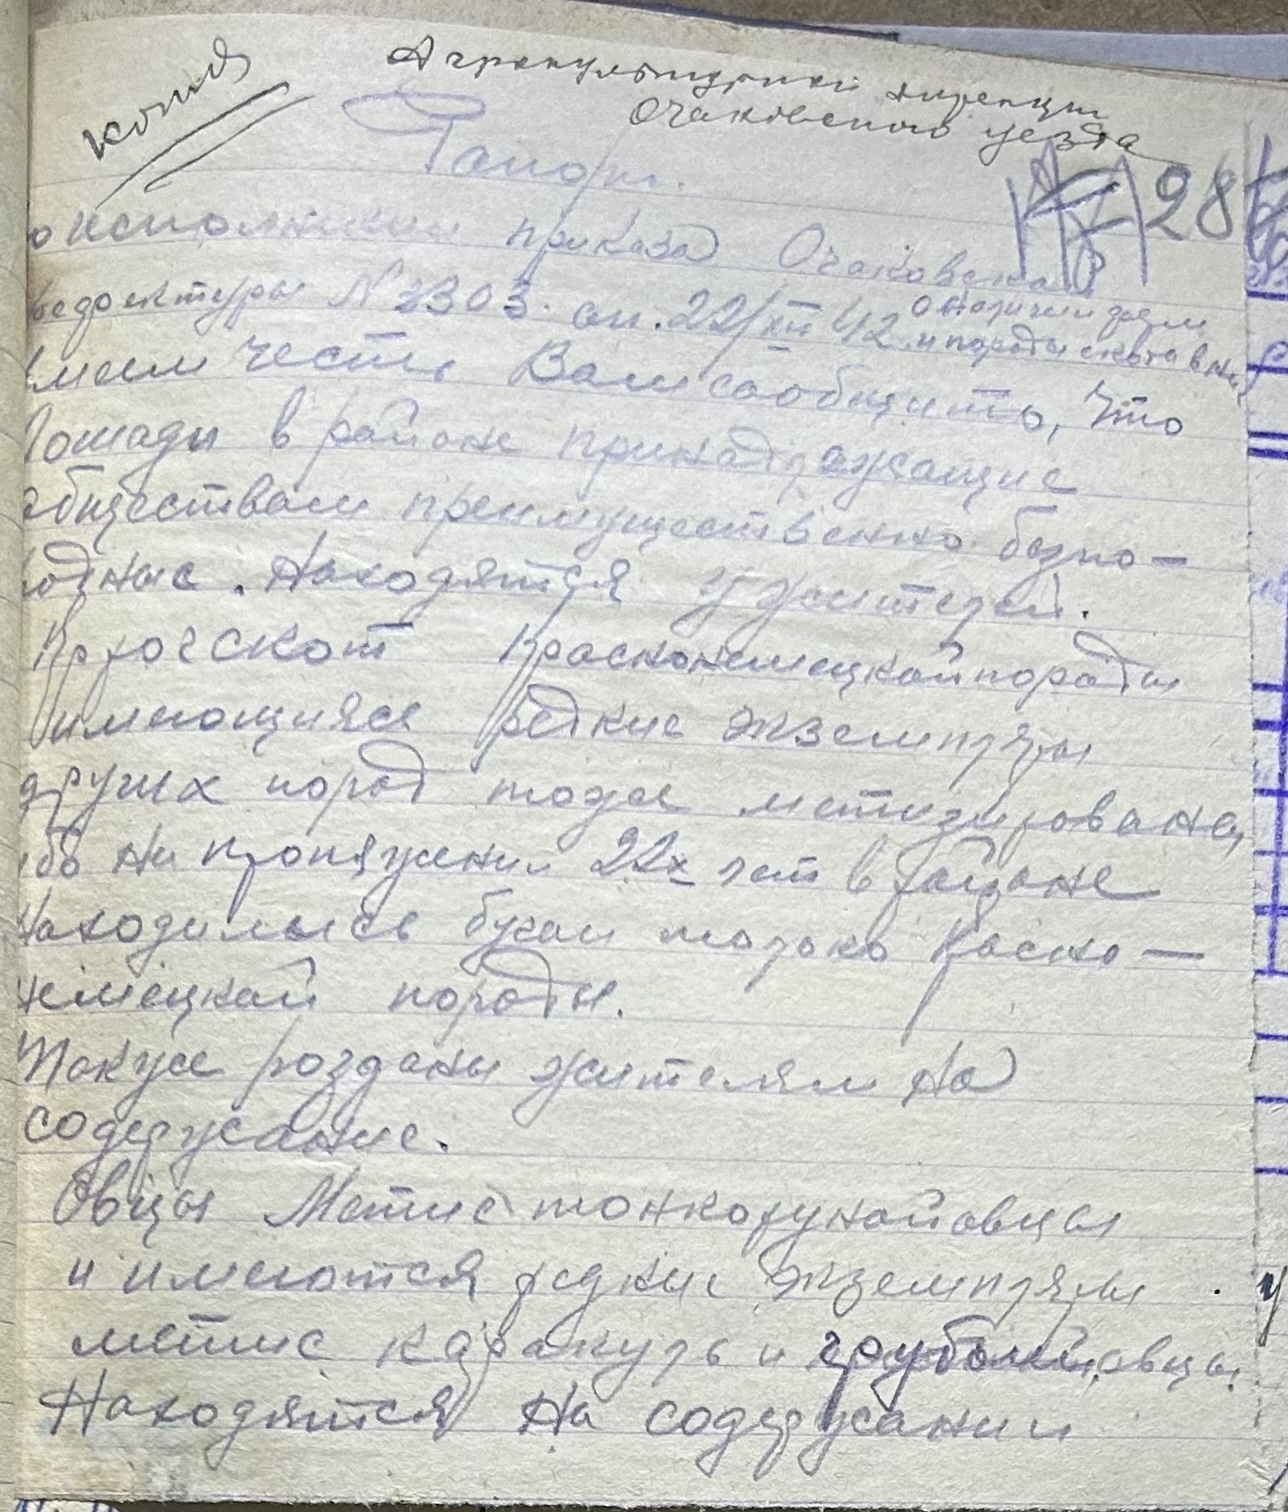 копия
Агрокультурной дирекции
Очаковского уезда
Рапорт.
28
о исполнении приказа Очаковской
ефектуры N 2303. от. 22/XII 42
о наличии
и породы скота в
меем честь Вам сообщить, что
Лошади в районе принадлежащие
обществам преимущественно безпо-
одные. Находятся у жителей.
Кр рог скот Краснонемецкой породы
имеющияся редкие экземпляры
других пород тоже метизированы,
ибо на протяжении 22х лет в районе
находились бугаи только Красно-
немецкой породы.
Также розданы жителям на
содержание.
Овцы Метис тонкорунной овцы
и имеются редкие экземпляры
метис каракуль и грубой овцы.
Находятся на содержании